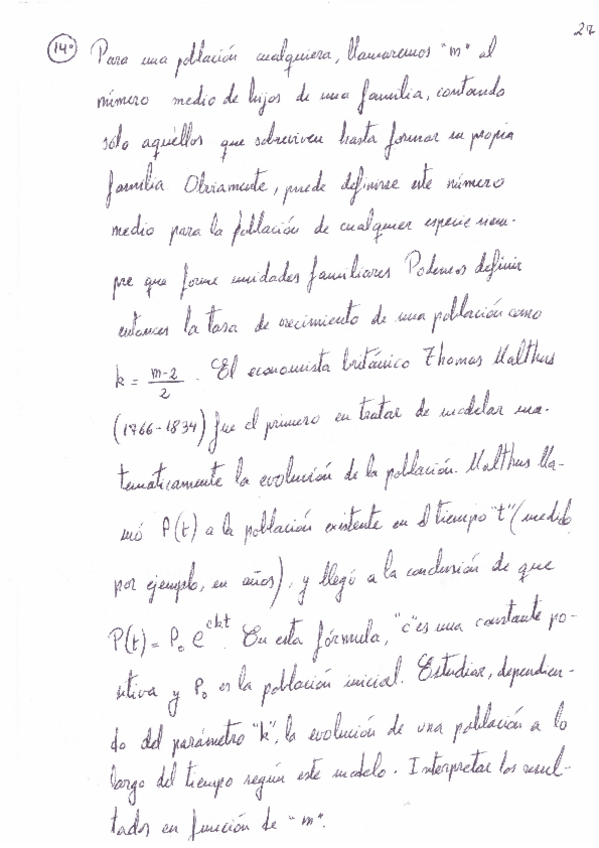 27
14º Para una población cualquiera, llamaremos "m" al
número medio de hijos de una familia, contando
sólo aquéllos que sobreviven hasta formar su propia
familia. Obviamente, puede definirse este número
medio para la población de cualquier especie siem-
pre que forme unidades familiares. Podemos definir
entonces la tasa de crecimiento de una población como
k = (m-2)/2 . El economista británico Thomas Malthus
(1766-1834) fue el primero en tratar de modelar ma-
temáticamente la evolución de la población. Malthus lla-
mó P(t) a la población existente en el tiempo "t" (medido
por ejemplo, en años), y llegó a la conclusión de que
P(t) = P₀ e^ckt. En esta fórmula, "c" es una constante po-
sitiva y P₀ es la población inicial. Estudiar, dependien-
do del parámetro "k", la evolución de una población a lo
largo del tiempo según este modelo. Interpretar los resul-
tados en función de "m".